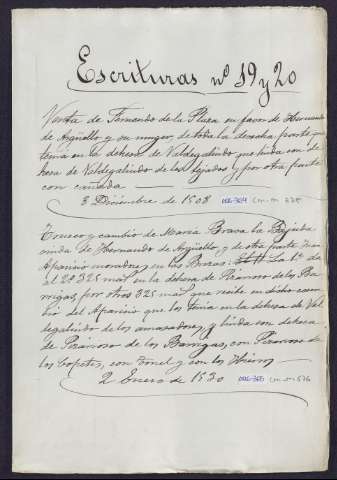 Escrituras nº 19 y 20
Venta de Fernando de la Plaza en favor de Hernando
de Argüello y su muger de toda la derecha parte que
tenia en la dehesa de Valdegalindo que linda con de-
hesa de Valdegalindo de los tejados y por otra parte
con cañada
3 Diciembre de 1508
Trueco y cambio de María Brava la
viuda de Hernando de Argüello y de otra parte Juan
Aparicio morador en las Brozas. La 1ª da
al 2º 325 mas en la dehesa de Pizarroso de los Ba-
rrigas, por otros 325 mas que recibe en dicho cam-
bio del Aparicio que los tenia en la dehesa de Val-
degalindo de los amasadores, y linda con dehesa
de Pizarroso de los Barrigas, con Pizarroso de
los Copetes, con Tonel y con los
2 Enero de 1530